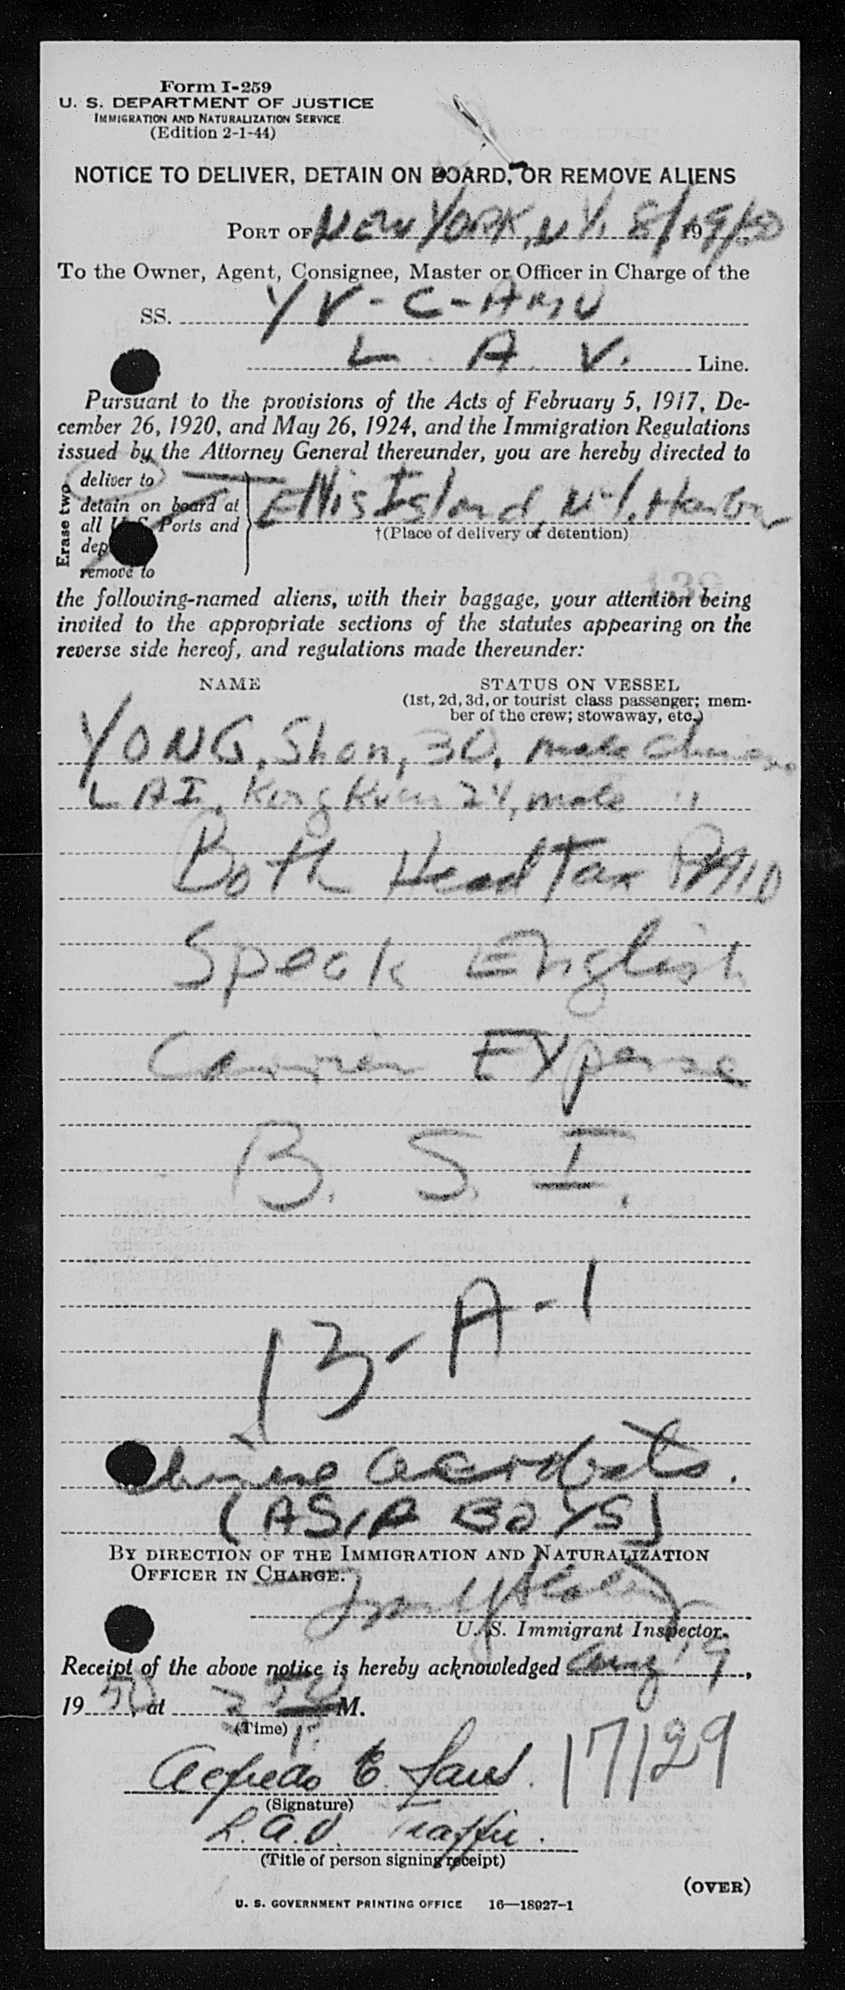 Form I-259
U. S. DEPARTMENT OF JUSTICE
IMMIGRATION AND NATURALIZATION SERVICE
(Edition 2-1-44)
NOTICE TO DELIVER, DETAIN ON BOARD, OR REMOVE ALIENS
PORT OF NEW YORK, N.Y. 8/19/50
To the Owner, Agent, Consignee, Master or Officer in Charge of the
SS. YV-C-AMU
L. A. V. Line.
Pursuant to the provisions of the Acts of February 5, 1917, De-
cember 26, 1920, and May 26, 1924, and the Immigration Regulations
issued by the Attorney General thereunder, you are hereby directed to
Erase two
deliver to
detain on board at
all U. S. Ports and
dep
remove to
Ellis Island, N.Y. Harbor
†(Place of delivery or detention)
139
the following-named aliens, with their baggage, your attention being
invited to the appropriate sections of the statutes appearing on the
reverse side hereof, and regulations made thereunder:
NAME STATUS ON VESSEL
(1st, 2d, 3d, or tourist class passenger; mem-
ber of the crew; stowaway, etc.)
YONG, Shon, 30, male Chinese
LAI, Kong 24, male "
Both Head Tax PAID
Speak English
Carrier Expense
B. S. I.
13-A-1
Chinese acrobats.
(ASIA BOYS)
BY DIRECTION OF THE IMMIGRATION AND NATURALIZATION
OFFICER IN CHARGE.
U. S. Immigrant Inspector.
Receipt of the above notice is hereby acknowledged Aug 19,
1950, at P. M.
(Time)
Alfredo E.
17129
(Signature)
L.A.V. Traffic.
(Title of person signing receipt)
(OVER)
U. S. GOVERNMENT PRINTING OFFICE 16—18927-1